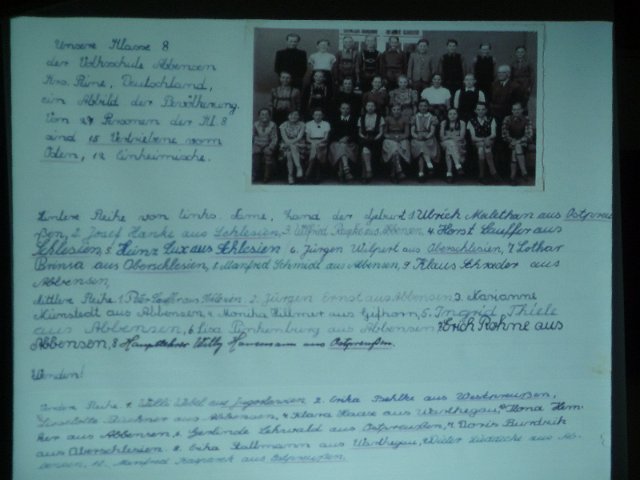 Unsere Klasse 8
der Volksschule Abbensen
Krs. Peine, Deutschland,
ein Abbild der Bevölkerung.
Von 27 Personen der Kl. 8
sind 15 Vertriebene vom
Osten, 12 Einheimische.
Hintere Reihe von links. Name, Land der Geburt 1 Ulrich Malethan aus Ostpreu-
ßen, 2. Josef Hanke aus Schlesien, 3. Wilfried aus Abbensen, 4. Horst aus
Schlesien, 5. Heinz Lux aus Schlesien 6. Jürgen Wolpert aus Oberschlesien, 7. Lothar
Brinsa aus Oberschlesien, 8. Manfred Schmidt aus Abbensen, 9. Klaus Schrader aus
Abbensen,
Mittlere Reihe 1. Peter aus 2. Jürgen Ernst aus Abbensen 3. Marianne
aus Abbensen 4. Monika Willmar aus Gifhorn, 5. Ingrid Thiele
aus Abbensen, 6. Lisa aus Abbensen 7. Erich Rohne aus
Abbensen, 8. Hauptlehrer Willy aus Ostpreußen.
Wenden!
Vordere Reihe 1. aus Jugoslawien 2. Erika aus Westpreußen,
Lieselotte aus Abbensen, 4. Klara Haase aus Warthegau, 5. Ilona Hen-
kes aus Abbensen, 6. Gerlinde Lehwald aus Ostpreußen, 7. Doris
aus Oberschlesien. 8. Erika aus Warthegau, 9. Dieter aus Ab-
bensen, 10. Manfred aus Ostpreußen.